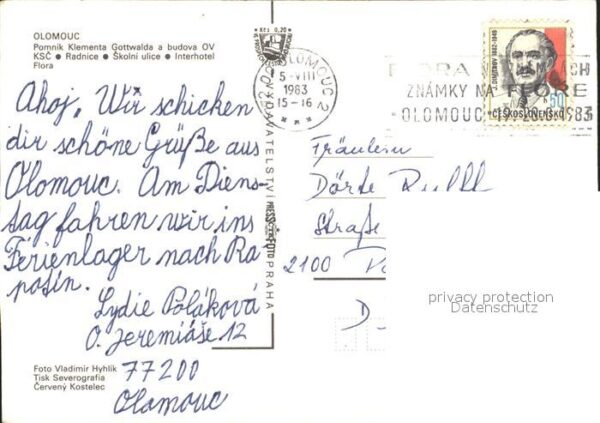 OLOMOUC
Pomník Klementa Gottwalda a budova OV
KSČ ● Radnice ● Školní ulice ● Interhotel
Flora
Ahoj, Wir schicken
dir schöne Grüße aus
Olomouc. Am Diens-
tag fahren wir ins
Ferienlager nach Ra-
potín.
Lydie Poláková
O. Jeremiáše 12
77200
Olomouc
Foto Vladimír Hyhlík
Tisk Severografia
Červený Kostelec
Kčs 0,20
VYDAVATELSTVÍ
PRESSFOTO
PRAHA
OLOMOUC 2
5.-VIII
1983
15-16
ZNÁMKY NA FLOŘE
OLOMOUC
1983
J. DIMITROV 1882-1949
50
ČESKOSLOVENSKO
Fräulein
Dörte
Straße
2100
D-
privacy protection
Datenschutz